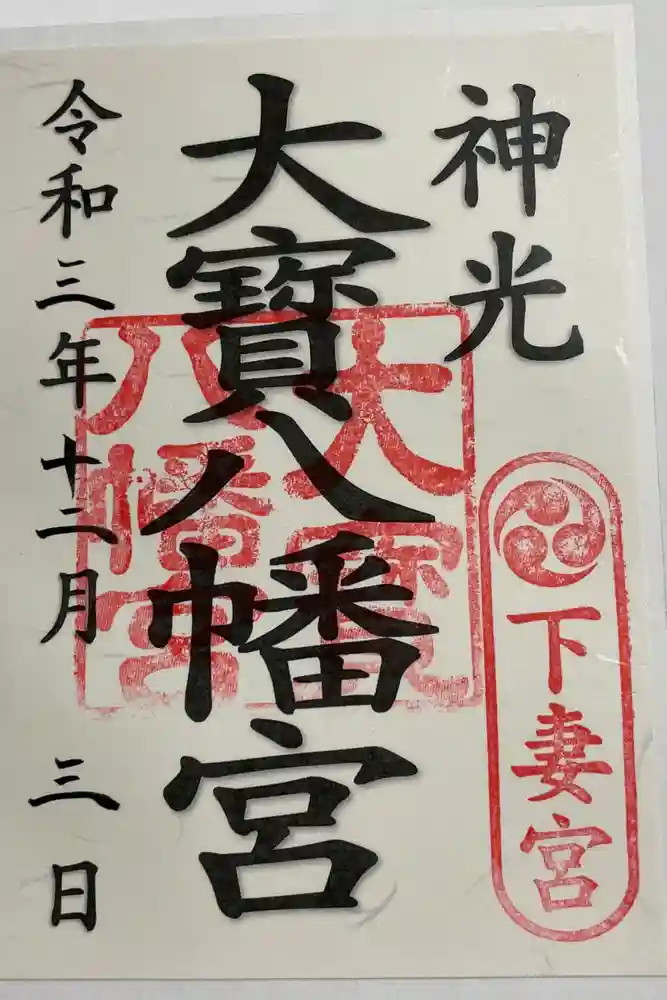 神光
下妻宮
大寳八幡宮
大寳
八幡宮
令和三年十二月三日